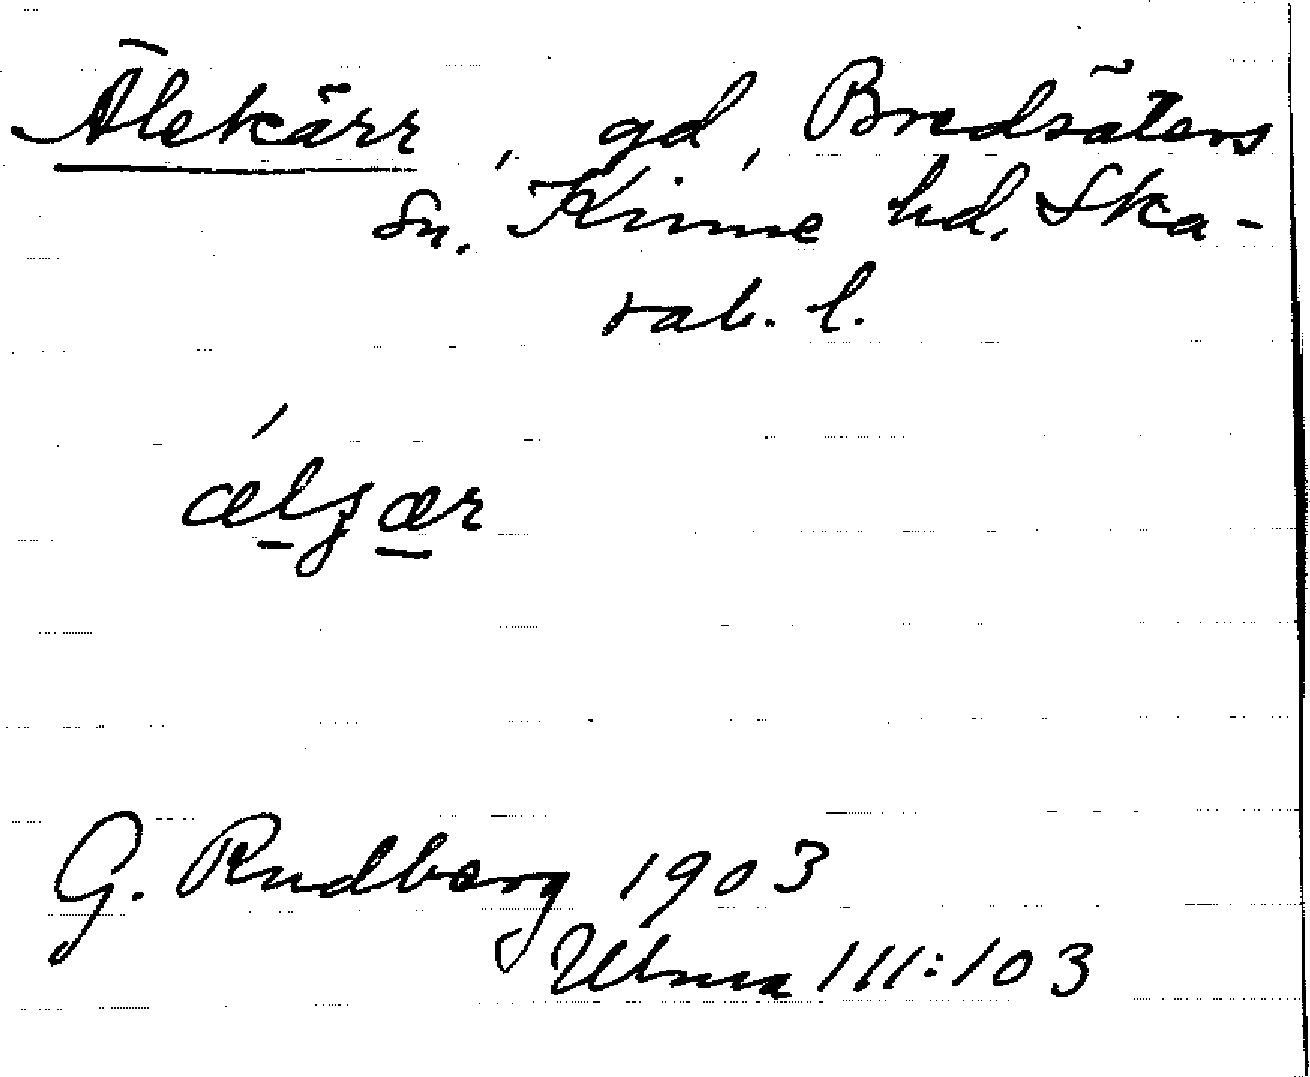 Älekärr, gd, Bredsäters
sn. Kinne hd. Ska-
rab. l.
ælʒær
G. Rudberg 1903
Ulma 111:103